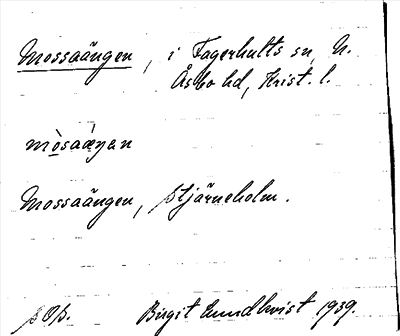 Mossaängen, i Fagerhults sn, N.
Åsbo hd, Krist. l.
mòsaáŋan
Mossaängen, Stjärneholm.
Birgit Lundkvist 1939.